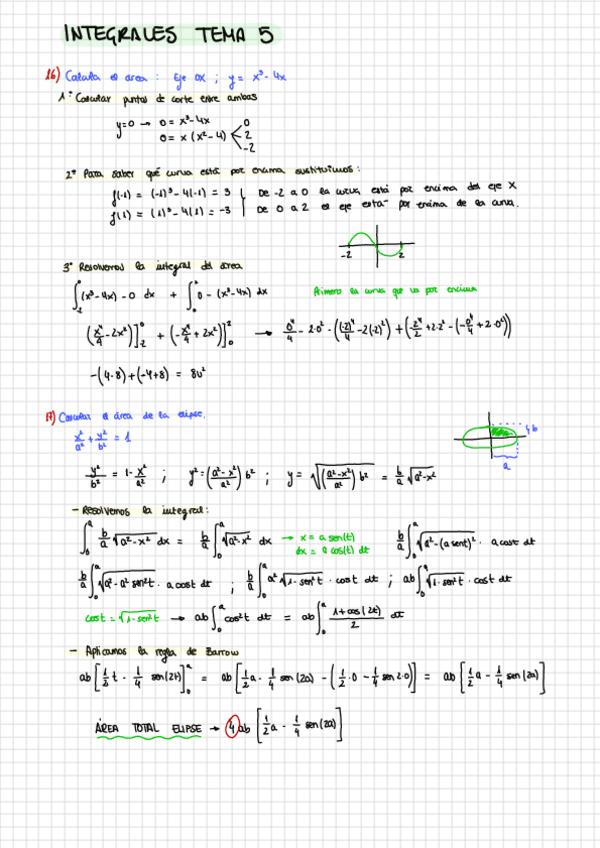 INTEGRALES TEMA 5
16) Calcula el área : Eje OX ; y = x³ - 4x
1º Calcular puntos de corte entre ambas
y=0 → 0 = x³-4x
0 = x (x²-4) < 0 2 -2
2º Para saber qué curva está por encima sustituimos :
f(-1) = (-1)³ - 4(-1) = 3 } De -2 a 0 la curva está por encima del eje X
f(1) = (1)³ - 4(1) = -3 De 0 a 2 el eje está por encima de la curva.
-2 2
3º Resolvemos la integral del área
∫₋₂⁰ (x³-4x) - 0 dx + ∫₀² 0 - (x³-4x) dx Primero la curva que va por encima
(x⁴/4 - 2x²)]₋₂⁰ + (-x⁴/4 + 2x²)]₀² → 0⁴/4 - 2·0² - ((-2)⁴/4 - 2(-2)²) + (-2⁴/2 + 2·2² - (-0⁴/4 + 2·0²))
-(4-8) + (-4+8) = 8u²
17) Calcular el área de la elipse.
x²/a² + y²/b² = 1
b
a
y²/b² = 1 - x²/a² ; y² = (a²-x²/a²) b² ; y = √((a²-x²/a²) b²) = b/a √a²-x²
- Resolvemos la integral :
∫₀ᵃ b/a √a²-x² dx = b/a ∫₀ᵃ √a²-x² dx → x = a sen(t) dx = a cos(t) dt b/a ∫₀ᵃ √a²-(a sent)² · a cost dt
b/a ∫₀ᵃ √a²-a² sen²t · a cost dt ; b/a ∫₀ᵃ a² √1-sen²t · cost dt ; ab ∫₀ᵃ √1-sen²t · cost dt
cost = √1-sen²t → ab ∫₀ᵃ cos²t dt = ab ∫₀ᵃ 1+cos(2t)/2 dt
- Aplicamos la regla de Barrow
ab [1/2 t - 1/4 sen(2t)]₀ᵃ = ab [1/2 a - 1/4 sen(2a) - (1/2·0 - 1/4 sen 2·0)] = ab [1/2 a - 1/4 sen(2a)]
ÁREA TOTAL ELIPSE → 4ab [1/2 a - 1/4 sen(2a)]